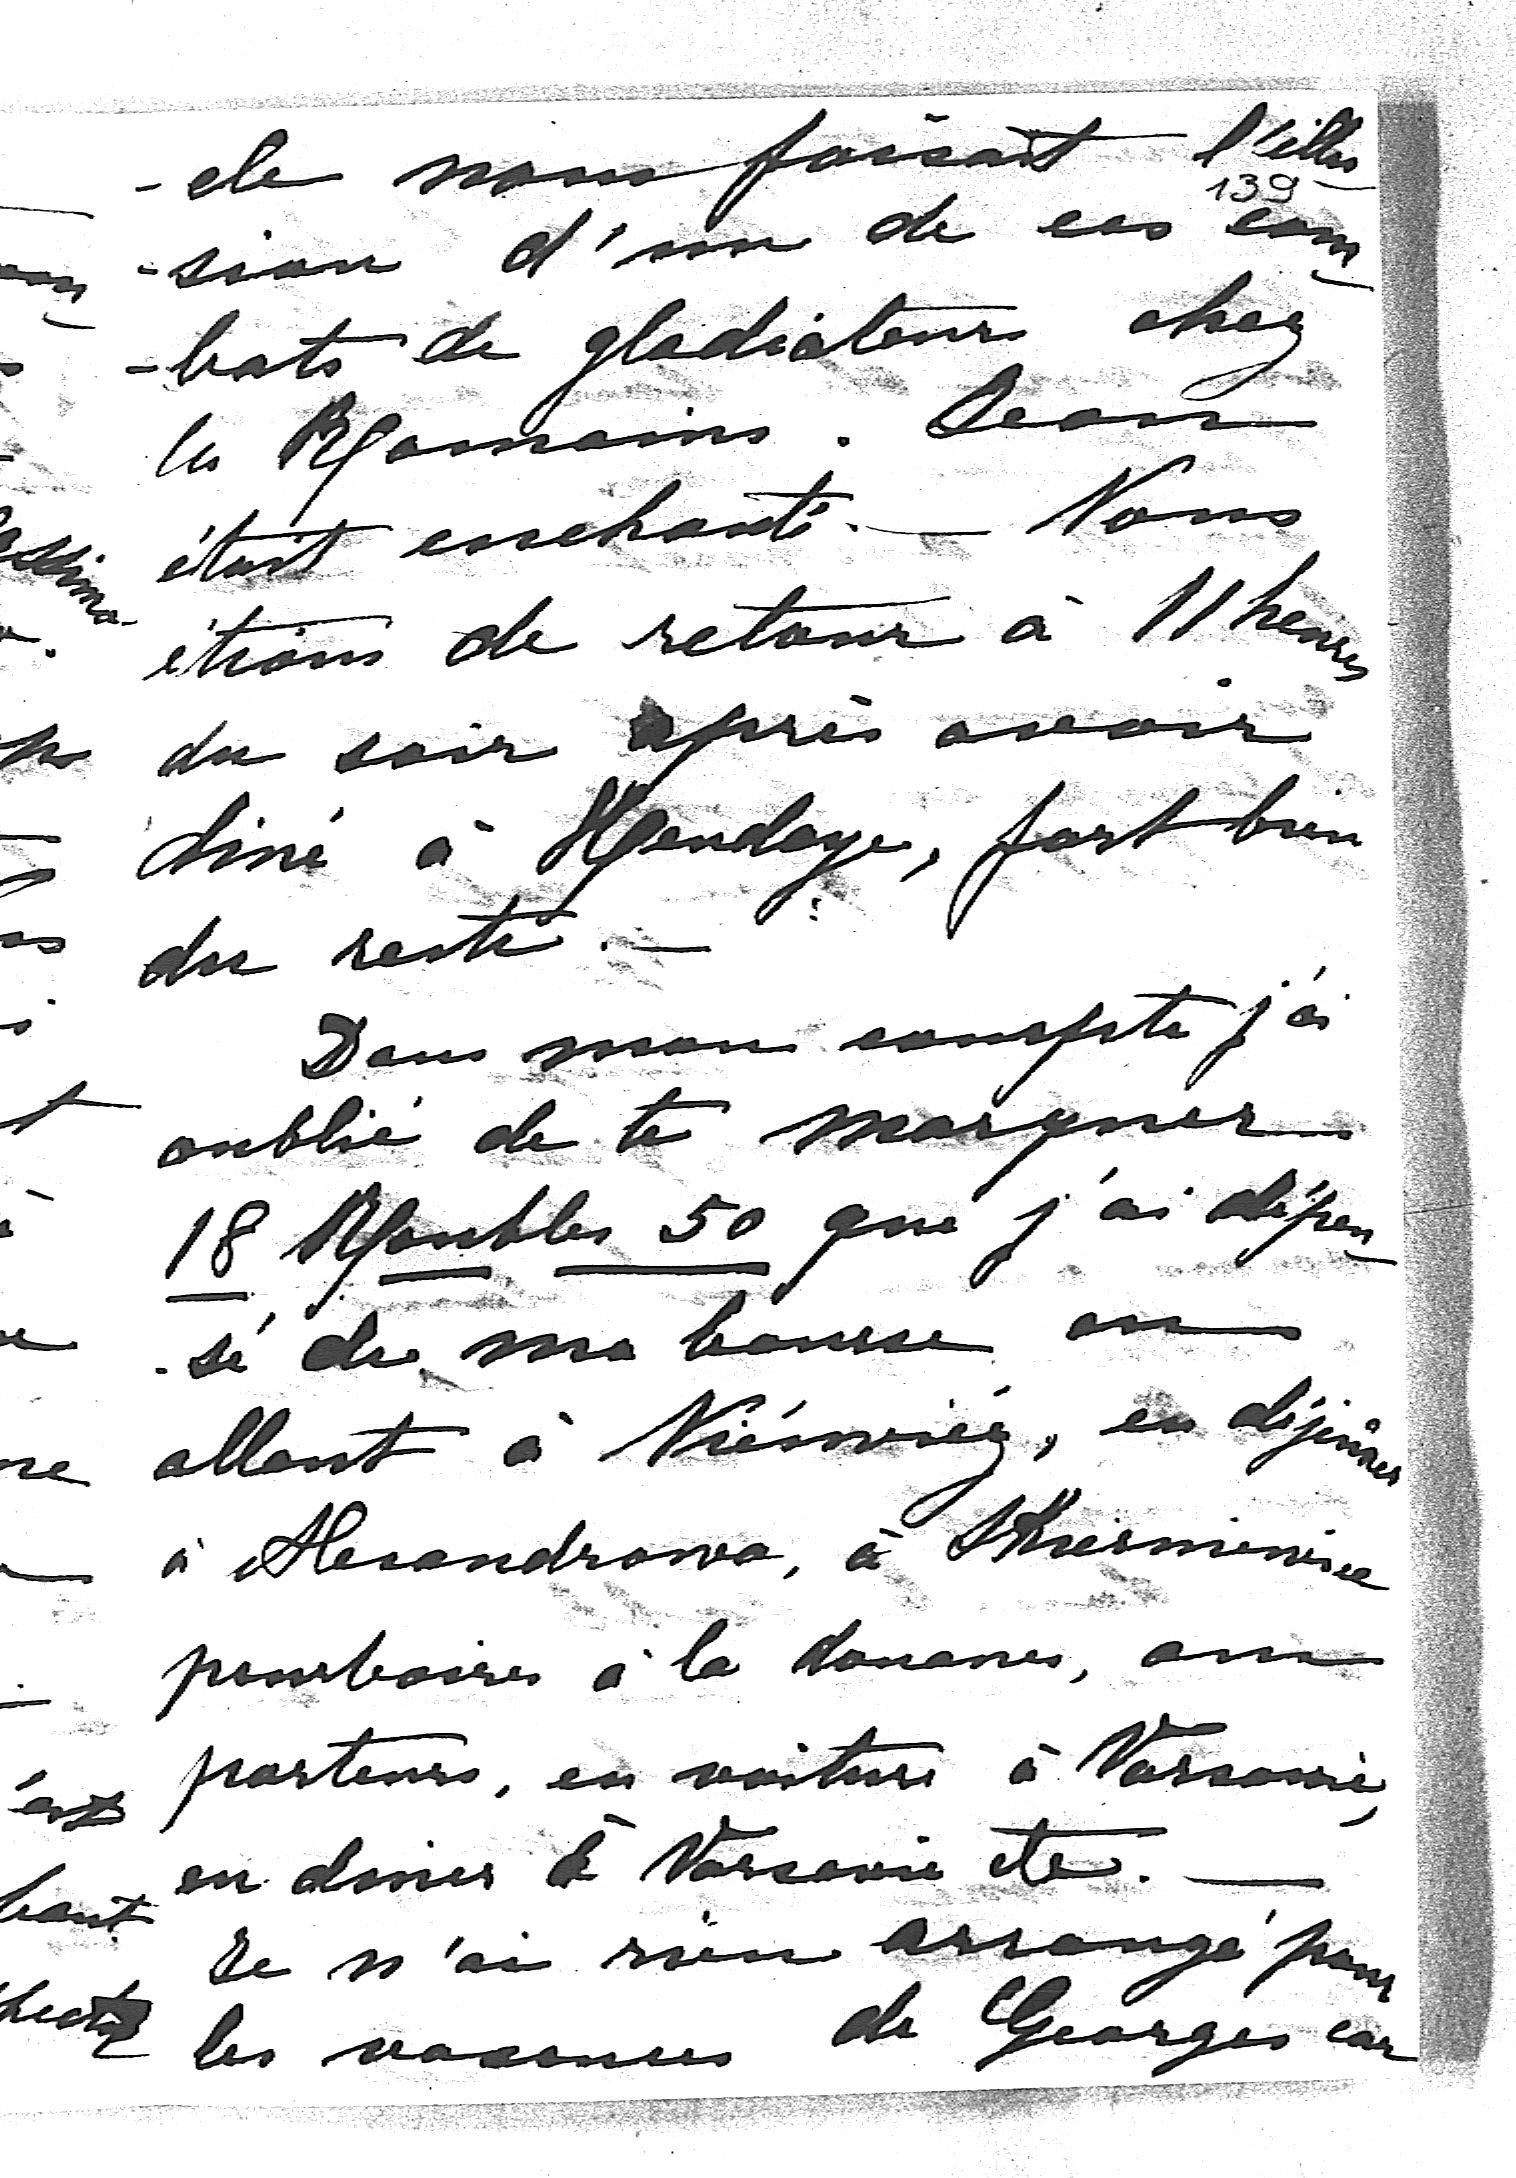 -cle nous faisait l'illu-
139
-sion d'un de ces com-
-bats de gladiateurs chez
les Romains. Jean
était enchanté. — Nous
étions de retour à 11 heures
du soir après avoir
diné à Hendaye, fort bien
du reste. —
Dans mon compte j'ai
oublié de te marquer
18 Roubles 50 que j'ai dépen-
-sé de ma bourse en
allant à Niéswiéz, en déjeûner
à Alexandrowo, à Skierniewice
pourboires à la douanes, aux
porteurs, en voiture à Varsovie,
en diner à Varsovie etc. —
Je n'ai rien arrangé pour
les vacances de Georges car